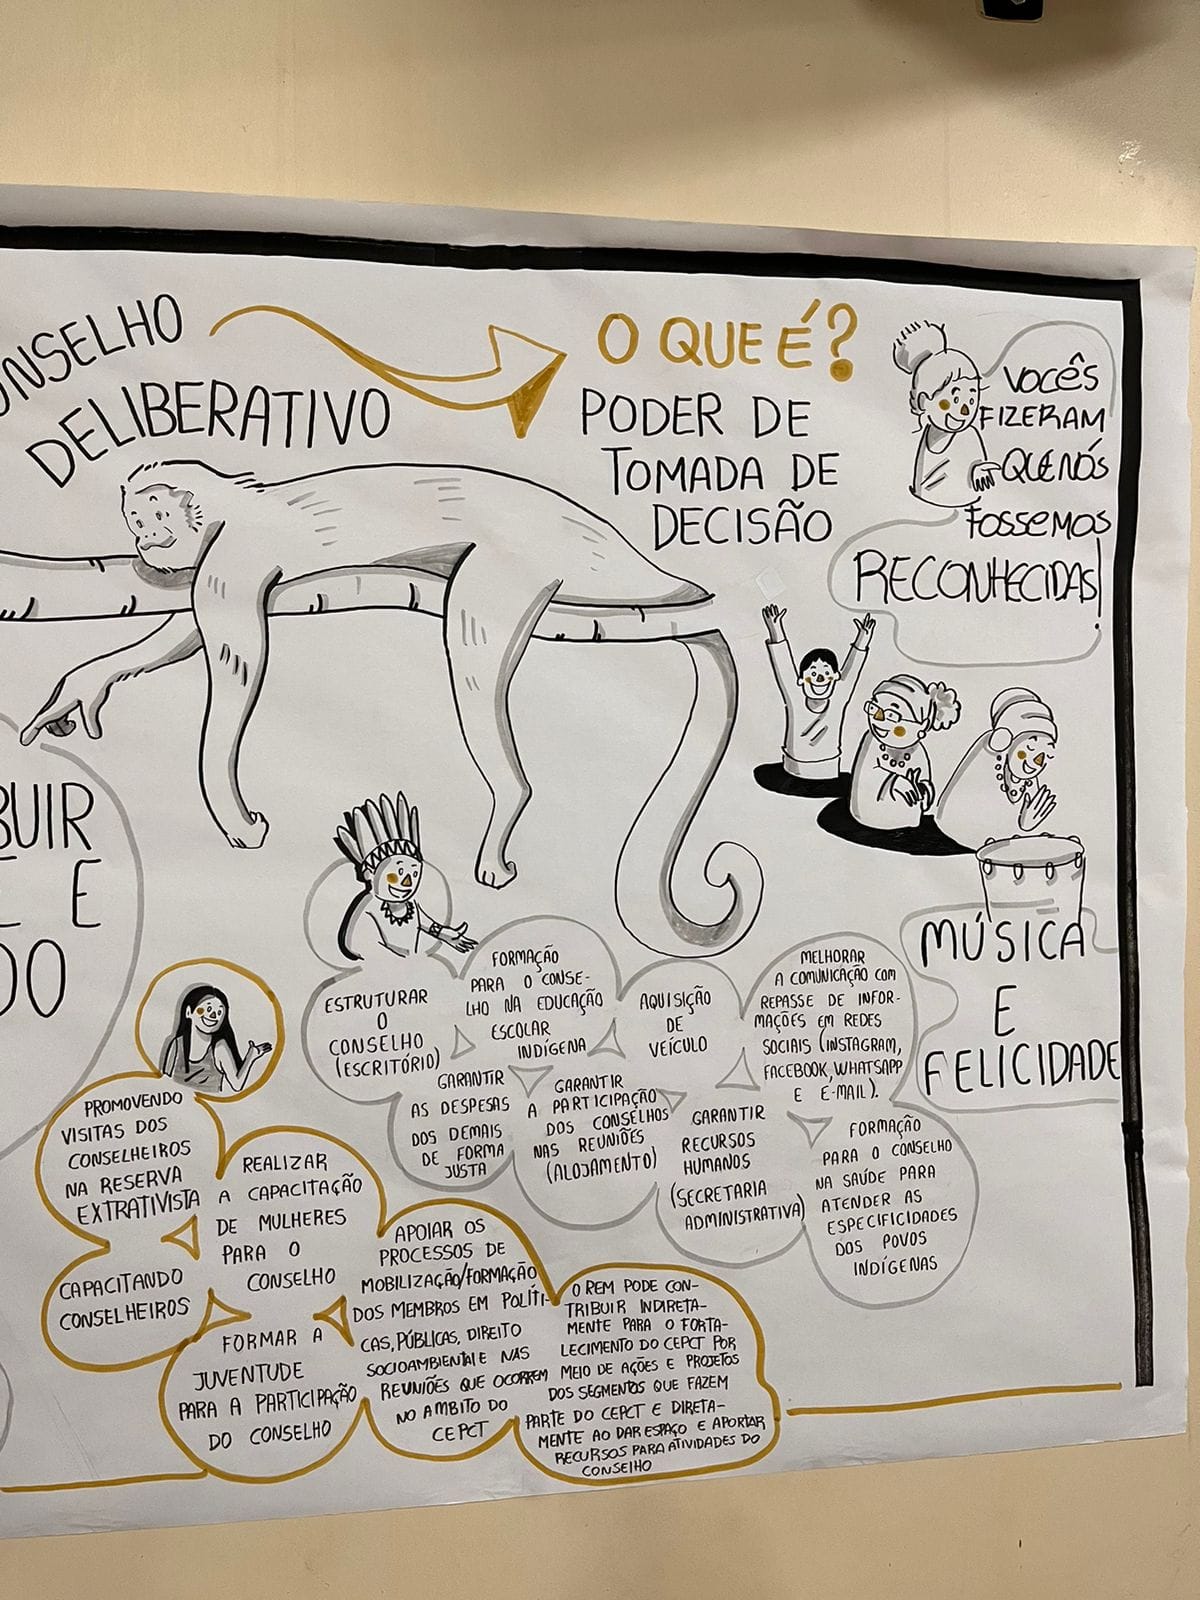 CONSELHO
DELIBERATIVO
O QUE É?
PODER DE
TOMADA DE
DECISÃO
VOCÊS
FIZERAM
QUE NÓS
FOSSEMOS
RECONHECIDAS!
BUIR
E
DO
MÚSICA
E
FELICIDADE
ESTRUTURAR
O
CONSELHO
(ESCRITÓRIO)
FORMAÇÃO
PARA O CONSE-
LHO NA EDUCAÇÃO
ESCOLAR
INDÍGENA
AQUISIÇÃO
DE
VEÍCULO
MELHORAR
A COMUNICAÇÃO COM
REPASSE DE INFOR-
MAÇÕES EM REDES
SOCIAIS (INSTAGRAM,
FACEBOOK, WHATSAPP
E E-MAIL).
GARANTIR
AS DESPESAS
DOS DEMAIS
DE FORMA
JUSTA
GARANTIR
A PARTICIPAÇÃO
DOS CONSELHOS
NAS REUNIÕES
(ALOJAMENTO)
GARANTIR
RECURSOS
HUMANOS
(SECRETARIA
ADMINISTRATIVA)
FORMAÇÃO
PARA O CONSELHO
NA SAÚDE PARA
ATENDER AS
ESPECIFICIDADES
DOS POVOS
INDÍGENAS
PROMOVENDO
VISITAS DOS
CONSELHEIROS
NA RESERVA
EXTRATIVISTA
REALIZAR
A CAPACITAÇÃO
DE MULHERES
PARA O
CONSELHO
CAPACITANDO
CONSELHEIROS
FORMAR A
JUVENTUDE
PARA A PARTICIPAÇÃO
DO CONSELHO
APOIAR OS
PROCESSOS DE
MOBILIZAÇÃO/FORMAÇÃO
DOS MEMBROS EM POLÍTI-
CAS, PÚBLICAS, DIREITO
SOCIOAMBIENTAL E NAS
REUNIÕES QUE OCORREM
NO AMBITO DO
CEPCT
O REM PODE CON-
TRIBUIR INDIRETA-
MENTE PARA O FORTA-
LECIMENTO DO CEPCT POR
MEIO DE AÇÕES E PROJETOS
DOS SEGMENTOS QUE FAZEM
PARTE DO CEPCT E DIRETA-
MENTE AO DAR ESPAÇO E APORTAR
RECURSOS PARA ATIVIDADES DO
CONSELHO